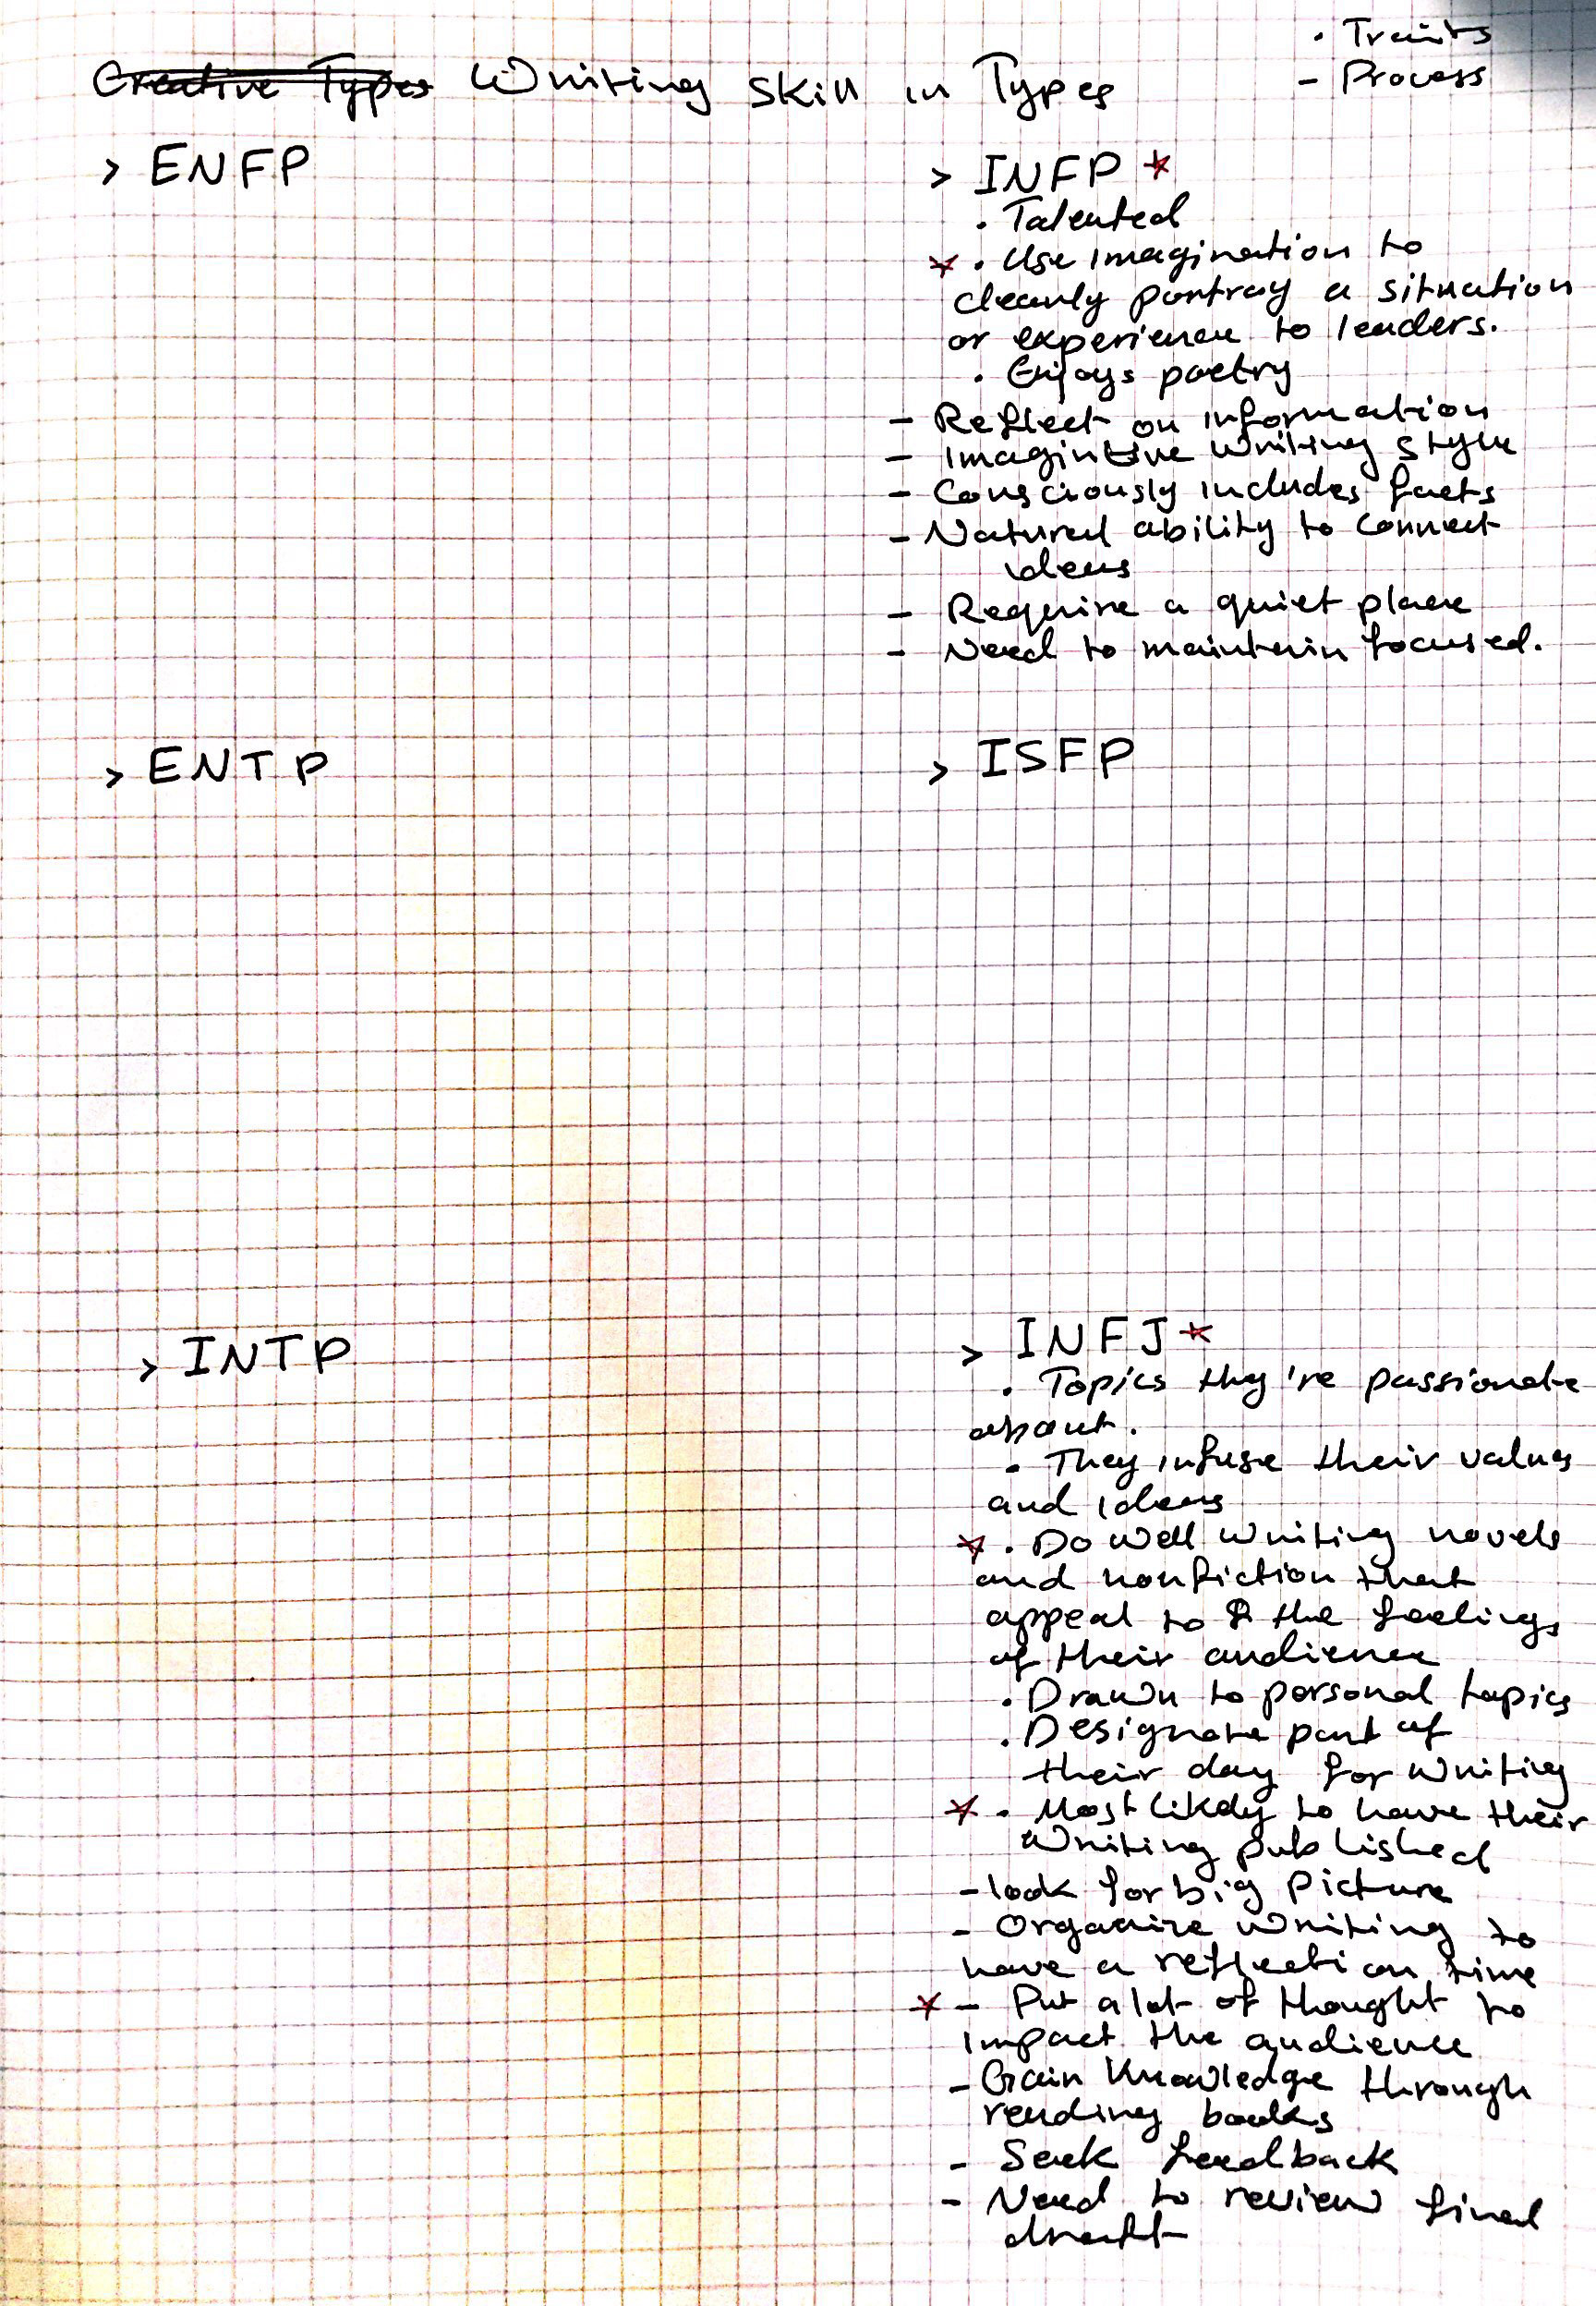 Creative Types Writing Skill in Types
• Traits
- Process
> ENFP
> INFP *
• Talented
* • Use imagination to
clearly portray a situation
or experience to leaders.
• Enjoys poetry
- Reflect on information
- Imagintive writing style
- Consciously includes facts
- Natural ability to connect
ideas
- Require a quiet place
- Need to maintain focused.
> ENTP
> ISFP
> INTP
> INFJ *
• Topics they're passionate
about.
• They infuse their values
and ideas
* • Do well writing novels
and nonfiction that
appeal to the feelings
of their audience
• Drawn to personal topics
• Designate part of
their day for writing
* • Most likely to have their
writing published
- look for big picture
- Organize writing to
have a reflection time
* - Put a lot of thought to
impact the audience
- Gain knowledge through
reading books
- Seek feedback
- Need to review final
draft